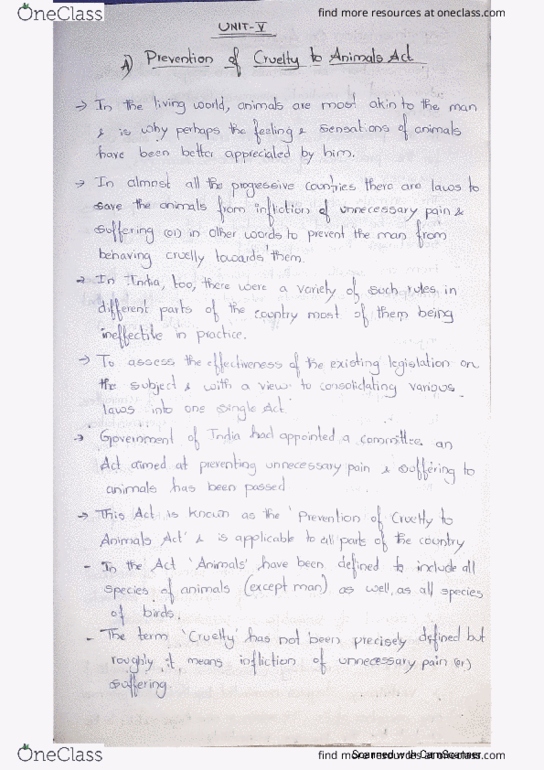 OneClass
find more resources at oneclass.com
UNIT-V
A) Prevention of Cruelty to Animals Act
→ In the living world, animals are most akin to the man
& is why perhaps the feeling & sensations of animals
have been better appreciated by him.
→ In almost all the progressive countries there are laws to
save the animals from infliction of unnecessary pain &
suffering (or) in other words to prevent the man from
behaving cruelly towards them.
→ In India, too, there were a variety of such rules in
different parts of the country most of them being
ineffective in practice.
→ To assess the effectiveness of the existing legislation on
the subject & with a view to consolidating various
laws into one single Act
→ Government of India had appointed a committee. an
Act aimed at preventing unnecessary pain & suffering to
animals has been passed
→ This Act is known as the 'Prevention of Cruelty to
Animals Act' & is applicable to all parts of the country
- In the Act 'Animals' have been defined to include all
species of animals (except man) as well, as all species
of birds.
- The term 'Cruelty' has not been precisely defined but
roughly it, means infliction of unnecessary pain (or)
suffering.
OneClass
find more resources at oneclass.com
Scanned with CamScanner